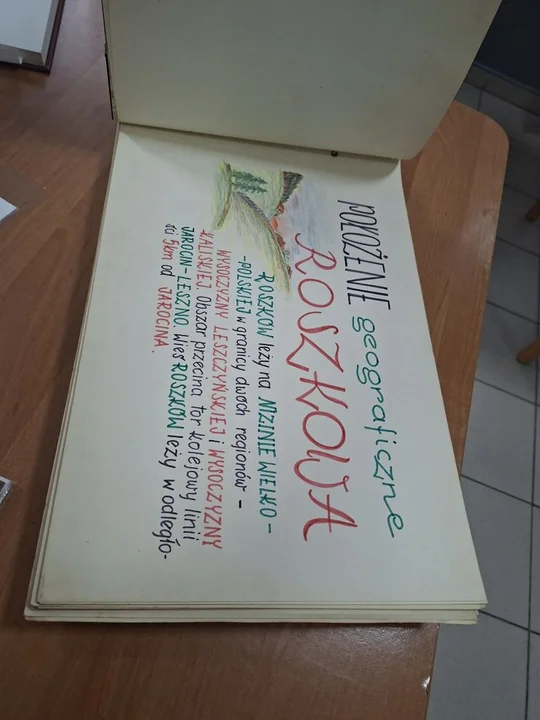 POŁOŻENIE geograficzne
ROSZKOWA
ROSZKÓW leży na NIZINIE WIELKO-
-POLSKIEJ w granicy dwóch regionów -
WYSOCZYZNY LESZCZYŃSKIEJ i WYSOCZYZNY
KALISKIEJ. Obszar przecina tor kolejowy linii
JAROCIN-LESZNO. Wieś ROSZKÓW leży w odległo-
ści 5km od JAROCINA.